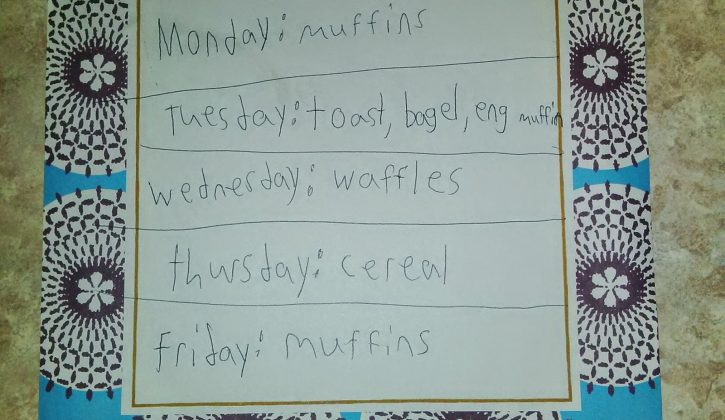 Monday: muffins
Tuesday: toast, bagel, eng muffin
wednesday: waffles
thursday: cereal
Friday: muffins